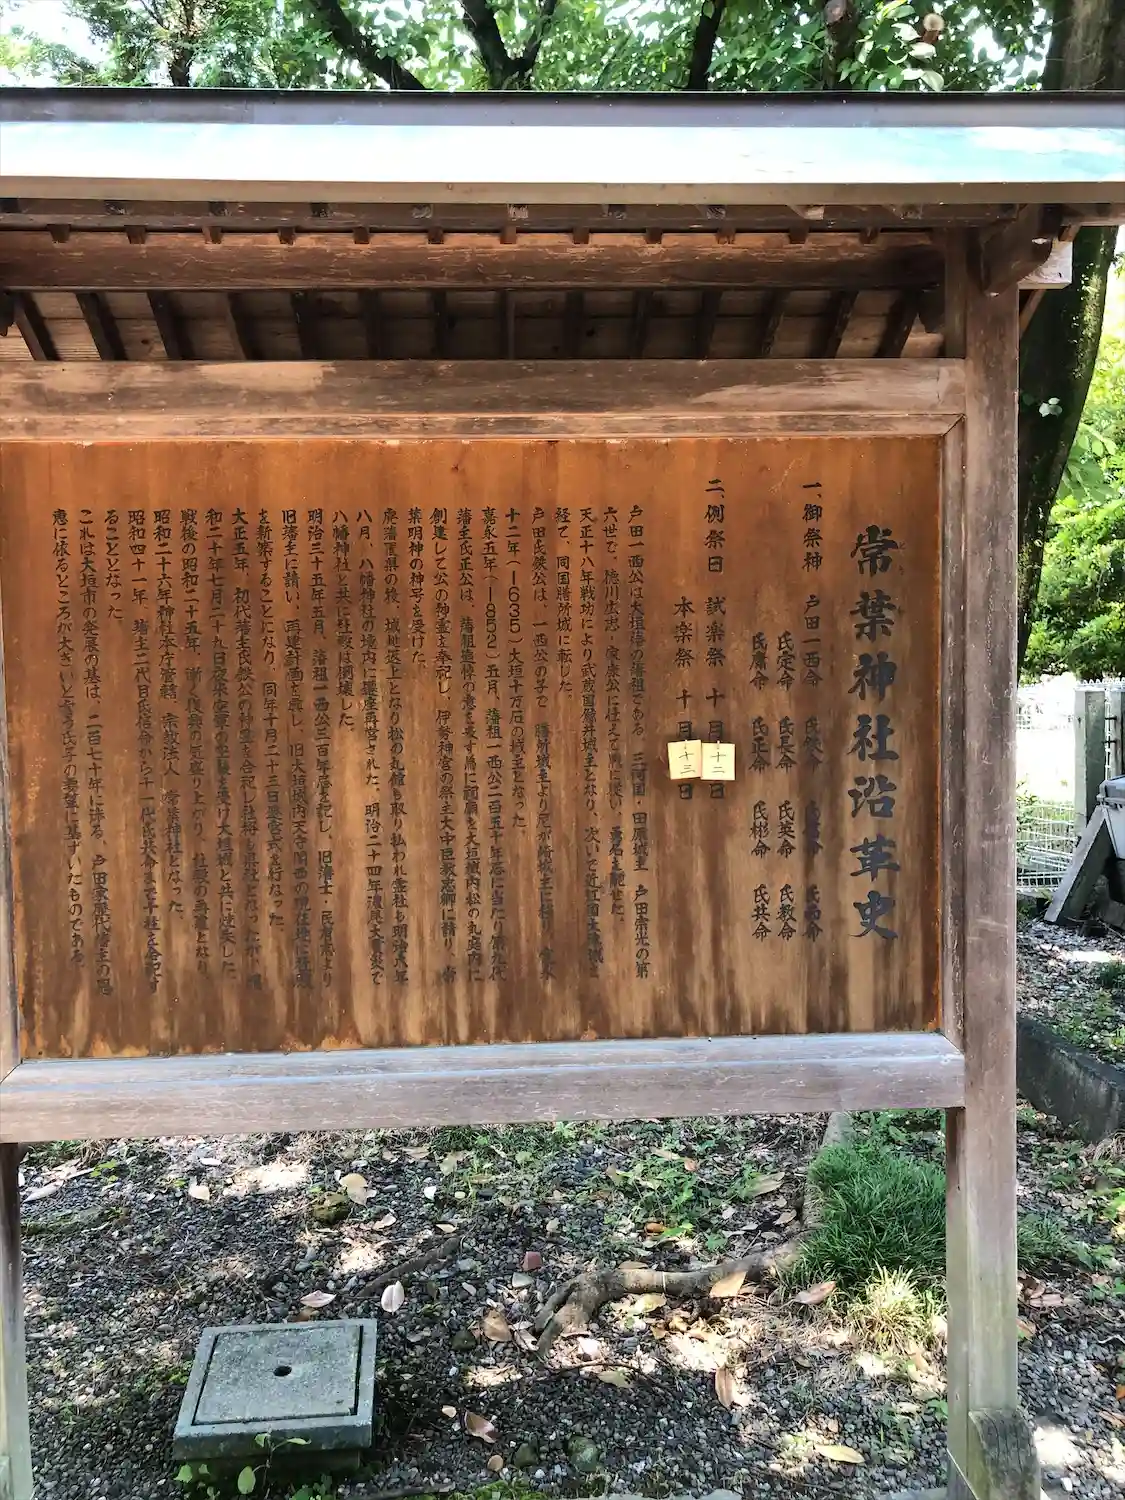 常葉神社沿革史
一、御祭神 戸田一西命 氏鉄命 氏西命
氏定命 氏長命 氏英命 氏教命
氏庸命 氏正命 氏彬命 氏共命
二、例祭日 試楽祭 十月十二日
本楽祭 十月十三日
戸田一西公は大垣藩の藩祖である 三河国・田原城主 戸田宗光の第
六世で、徳川広忠・家康公に仕えて戦に従い、勇名を馳せた。
天正十八年戦功により武蔵国鯨井城主となり、次いで近江国大津城を
経て、同国膳所城に転じた。
戸田氏鉄公は、一西公の子で 膳所城主より尼が崎城主に移り、寛永
十二年(1635)大垣十万石の城主となった。
嘉永五年(1852)五月、藩祖一西公二百五十年忌に当たり第九代
藩主氏正公は、藩祖追悼の意を表す為に祠廟を大垣城内松の丸庭内に
創建して公の神霊を奉祀し、伊勢神宮の祭主大中臣教忠卿に請り、常
葉明神の神号を受けた。
廃藩置県の後、城地返上となり松の丸館も取り払われ当社も明治六年
八月、八幡神社の境内に遷座再営された、明治二十四年濃尾大震災で
八幡神社と共に社殿は倒壊した。
明治三十五年五月、藩祖一西公三百年祭を記し、旧藩士・民有志より
旧藩主に請い、再建計画を興し、旧大垣城内天守閣西の現在地に社殿
を新築することになり、同年十月二十三日遷宮式を行なった。
大正五年、初代藩主氏鉄公の神霊を合祀し社格も県社となったが、昭
和二十年七月二十九日夜米空軍の空襲を受け大垣城と共に焼失した。
戦後の昭和二十五年、漸く復興の気盛り上がり、社殿の再建となり、
昭和二十六年神社本庁管轄、宗教法人 常葉神社となった。
昭和四十一年、藩主二代目氏信命から十一代氏共命まで十柱を合祀す
ることとなった。
これは大垣市の発展の基は、二百七十年に渉る、戸田家歴代藩主の恩
恵に依るところが大きいとする氏子の要望に基ずいたものである。